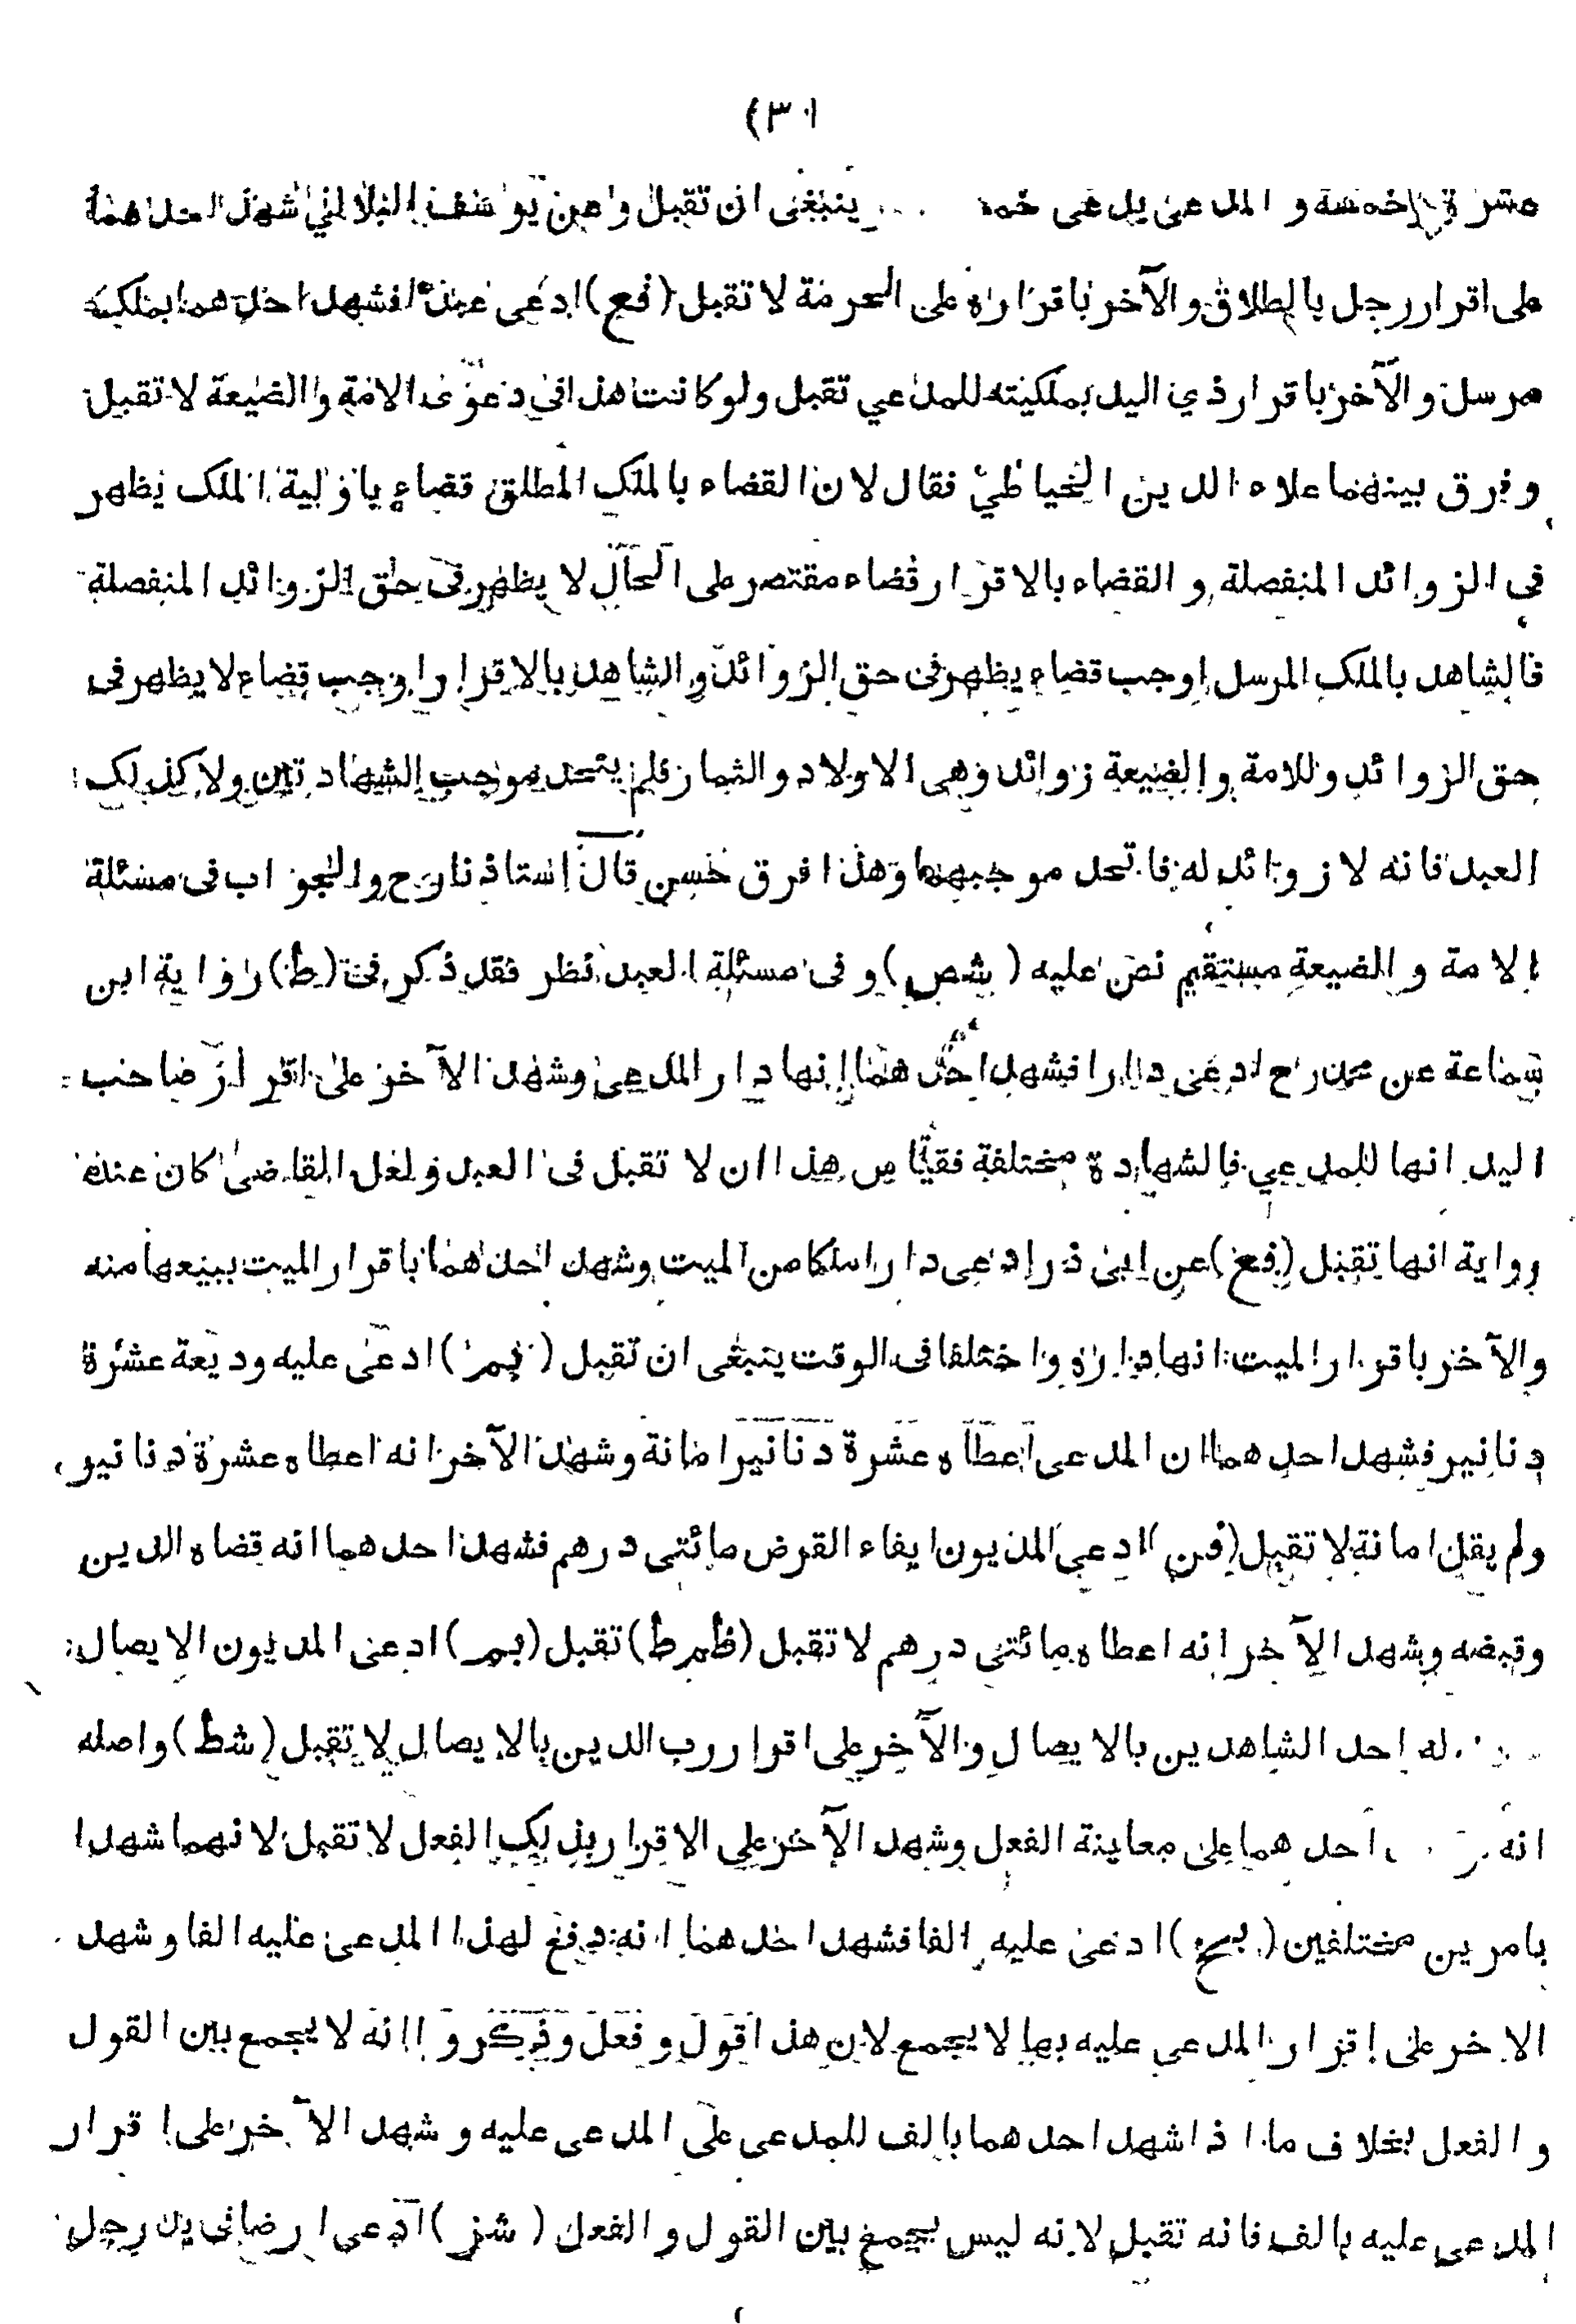 (٣٠١
عشرة وخمسة و المدعى يدعى خمسة ينبغى ان تقبل وعن يوسف البلالي شهد احدهما
على اقرار رجل بالطلاق والآخر باقراره على الحرمة لا تقبل (فع) ادعى عبدا فشهد احدهما بملكية
مرسل و الآخر باقرار ذي اليد بملكيته للمدعي تقبل ولو كانت هذا في دعوى الامة والضيعة لا تقبل
وفرق بينهما علاء الدين الخياطي فقال لان القضاء بالملك المطلق قضاء باولية الملك يظهر
في الزوائد المنفصلة و القضاء بالاقرار قضاء مقتصر على الحال لا يظهر فى حق الزوائد المنفصلة
فالشاهد بالملك المرسل اوجب قضاء يظهر فى حق الزوائد والشاهد بالاقرار اوجب قضاء لا يظهر فى
حق الزوائد وللامة والضيعة زوائد وهى الاولاد والثمار فلم يتحد موجب الشهادتين ولا كذلك
العبد فانه لا زوائد له فاتحد موجبهما وهذا فرق حسن قال استاذنا رح والجواب فى مسئلة
الامة و الضيعة مستقيم نص عليه (شص) و فى مسئلة العبد نظر فقد ذكر فى (ط) رواية ابن
سماعة عن محمد رح ادعى دارا فشهد احدهما انها دار المدعى وشهد الآخر على اقرار صاحب
اليد انها للمدعي فالشهادة مختلفة فقياس هذا ان لا تقبل فى العبد ولعل القاضى كان عنده
رواية انها تقبل (فع) عن ابى ذر ادعى دارا ملكا من الميت وشهد احدهما باقرار الميت ببيعها منه
والآخر باقرار الميت انها داره و اختلفا فى الوقت ينبغى ان تقبل (بم) ادعى عليه وديعة عشرة
دنانير فشهد احدهما ان المدعى اعطاه عشرة دنانير امانة وشهد الآخر انه اعطاه عشرة دنانير
ولم يقل امانة لا تقبل (فن) ادعى المديون ايفاء القرض مائتى درهم فشهد احدهما انه قضاه الدين
وقبضه وشهد الآخر انه اعطاه مائتى درهم لا تقبل (ظمرط) تقبل (بم) ادعى المديون الايصال
له احد الشاهدين بالايصال و الآخر على اقرار رب الدين بالايصال لا تقبل (شط) واصله
انه احدهما على معاينة الفعل وشهد الآخر على الاقرار بذلك الفعل لا تقبل لانهما شهدا
بامرين مختلفين (بح) ادعى عليه الفا فشهد احدهما انه دفع لهذا المدعى عليه الفا و شهد
الاخر على اقرار المدعى عليه بها لا يجمع لان هذا قول و فعل و ذكروا انه لا يجمع بين القول
و الفعل بخلاف ما اذا شهد احدهما بالف للمدعى على المدعى عليه و شهد الآخر على اقرار
المدعى عليه بالف فانه تقبل لانه ليس بجمع بين القول و الفعل (شز) ادعى ارضا فى يد رجل